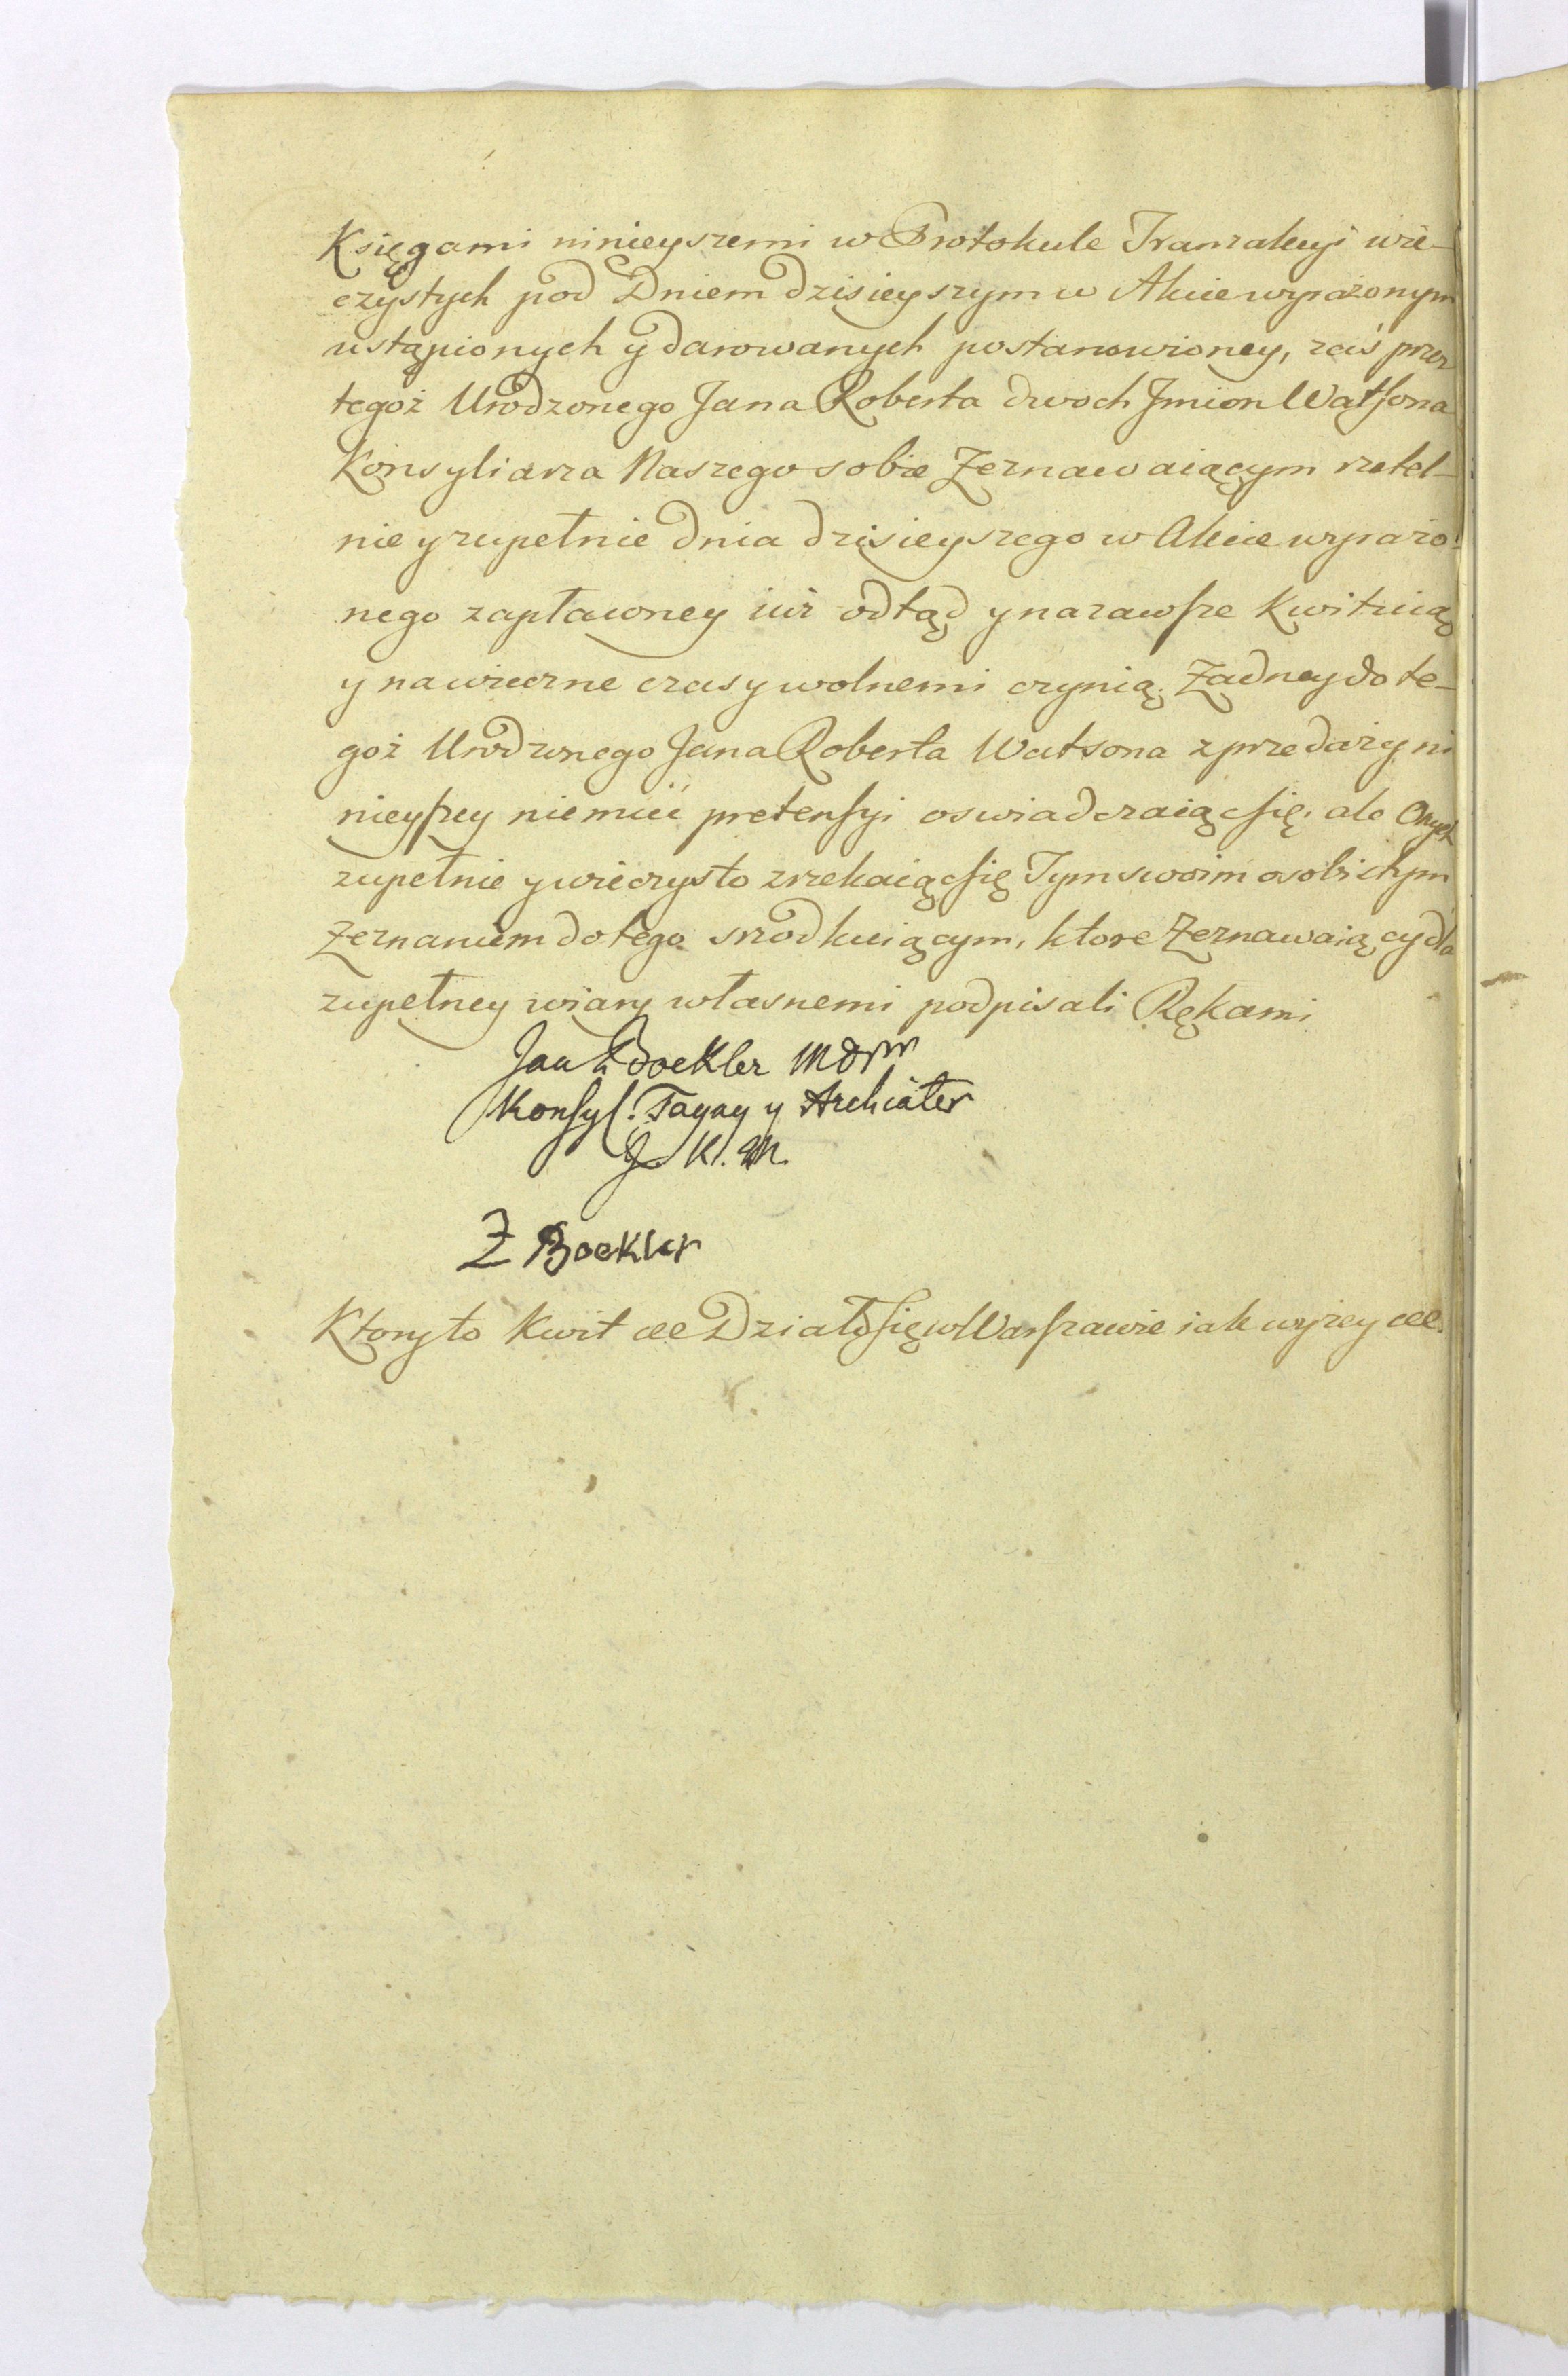 Księgami ninieyszemi w Protokule Tranzakcyi wie-
czystych pod Dniem dzisieyszym w Akcie wyrażonym
ustąpionych y darowanych postanowioney, zaś przez
tegoż Urodzonego Jana Roberta dwoch Jmion Watsona
Konsyliarza Naszego sobie Zeznawaiącym rzetel-
nie y zupełnie dnia dzisieyszego w Akcie wyrażo-
nego zapłaconey iuż odtąd y na zawsze kwituią
y na wieczne czasy wolnemi czynią. Żadney do te-
goż Urodzonego Jana Roberta Watsona z przedaży ni
nieyszey nie mieć pretensyi oswiadczaiąc się, ale Onych
zupełnie y wieczysto zrzekaiąc się Tym swoim osobistym
Zeznaniem do tego srzodkuiącym, ktore Zeznawaiący dla
zupełney wiary własnemi podpisali Rękami
Jan Boekler
Konsyl: Tayny y Archiater
J. K. M.
Z Boekler
Ktory to Kwit etc Działo się w Warszawie iak wyżey etc.